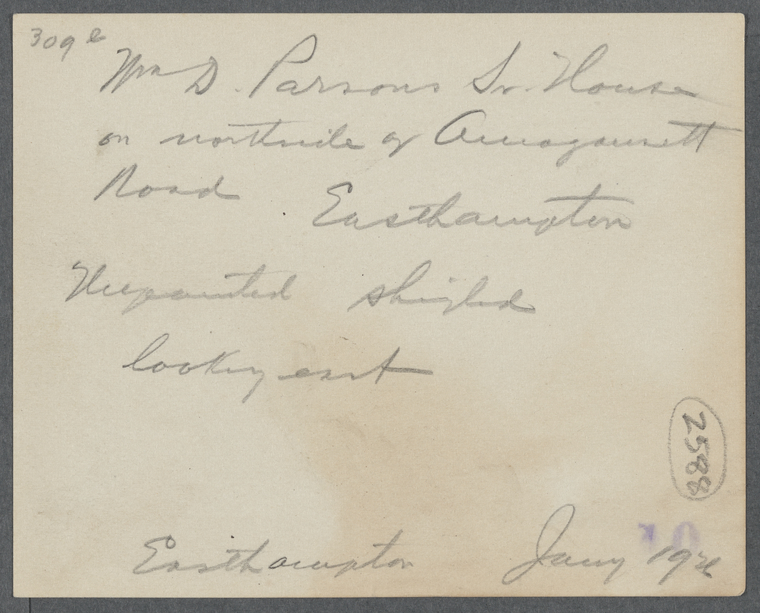 309 e
Wm D. Parsons Sr. House
on northside of Amagansett
Road Easthampton
Unpainted shingled
looking east
2588
Easthampton Jany